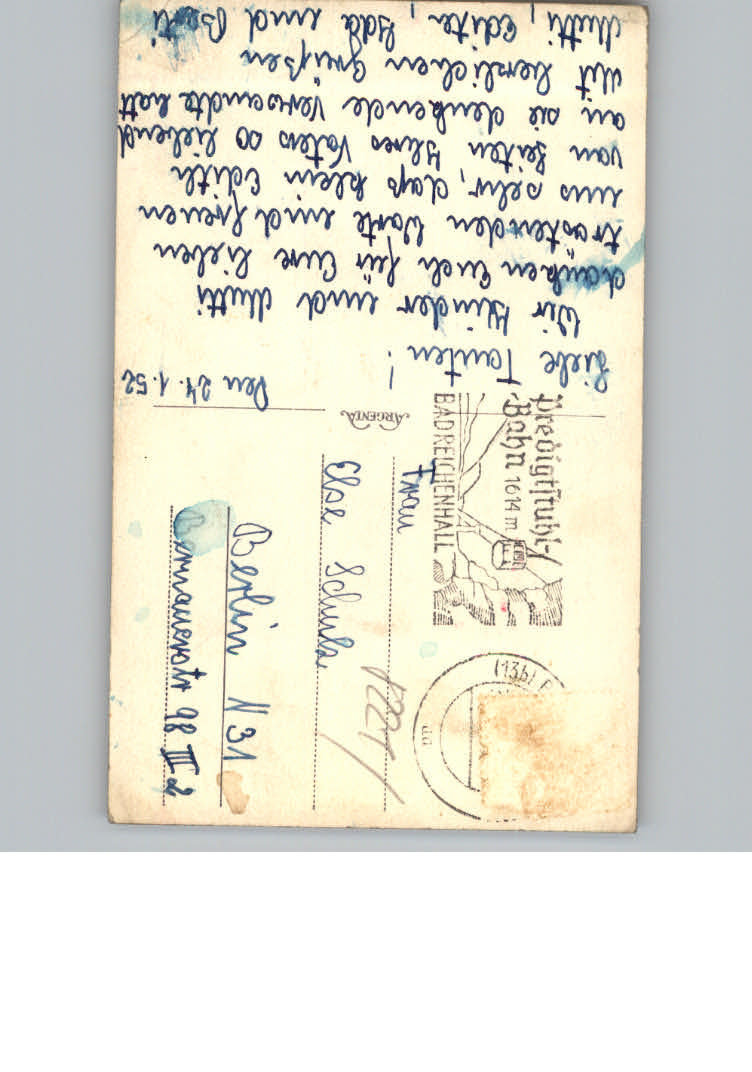 Den 24.1.52
Liebe Tanten!
Wir Kinder und Mutti
danken Euch für Eure lieben
tröstenden Worte und freuen
uns sehr, daß klein Edith
von Seiten Ihres Vaters so liebend
an sie denkende Verwandte hat
Mit herzlichen Grüßen
Mutti, Edith, Ida und
ARGENTA
Predigtstuhl-
-Bahn 1614 m
BAD REICHENHALL
(13b)
Frau
Else Schulz
Berlin N 31
Bernauerstr 98 III 2